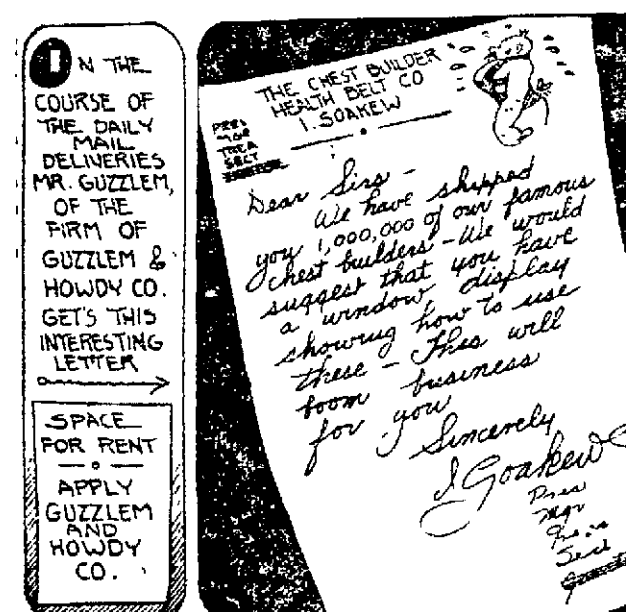 IN THE
COURSE OF
THE DAILY
MAIL
DELIVERIES
MR. GUZZLEM,
OF THE
FIRM OF
GUZZLEM &
HOWDY CO.
GETS THIS
INTERESTING
LETTER
SPACE
FOR RENT
APPLY
GUZZLEM
AND
HOWDY
CO.
THE CHEST BUILDER
HEALTH BELT CO
I. SOAKEW
PRES
MGR
TREA
SECT
Dear Sirs -
We have shipped
you 1,000,000 of our famous
chest builders - We would
suggest that you have
a window display
showing how to use
these - This will
boom business
for you
Sincerely
I Soakew
Pres
Mgr
Sect